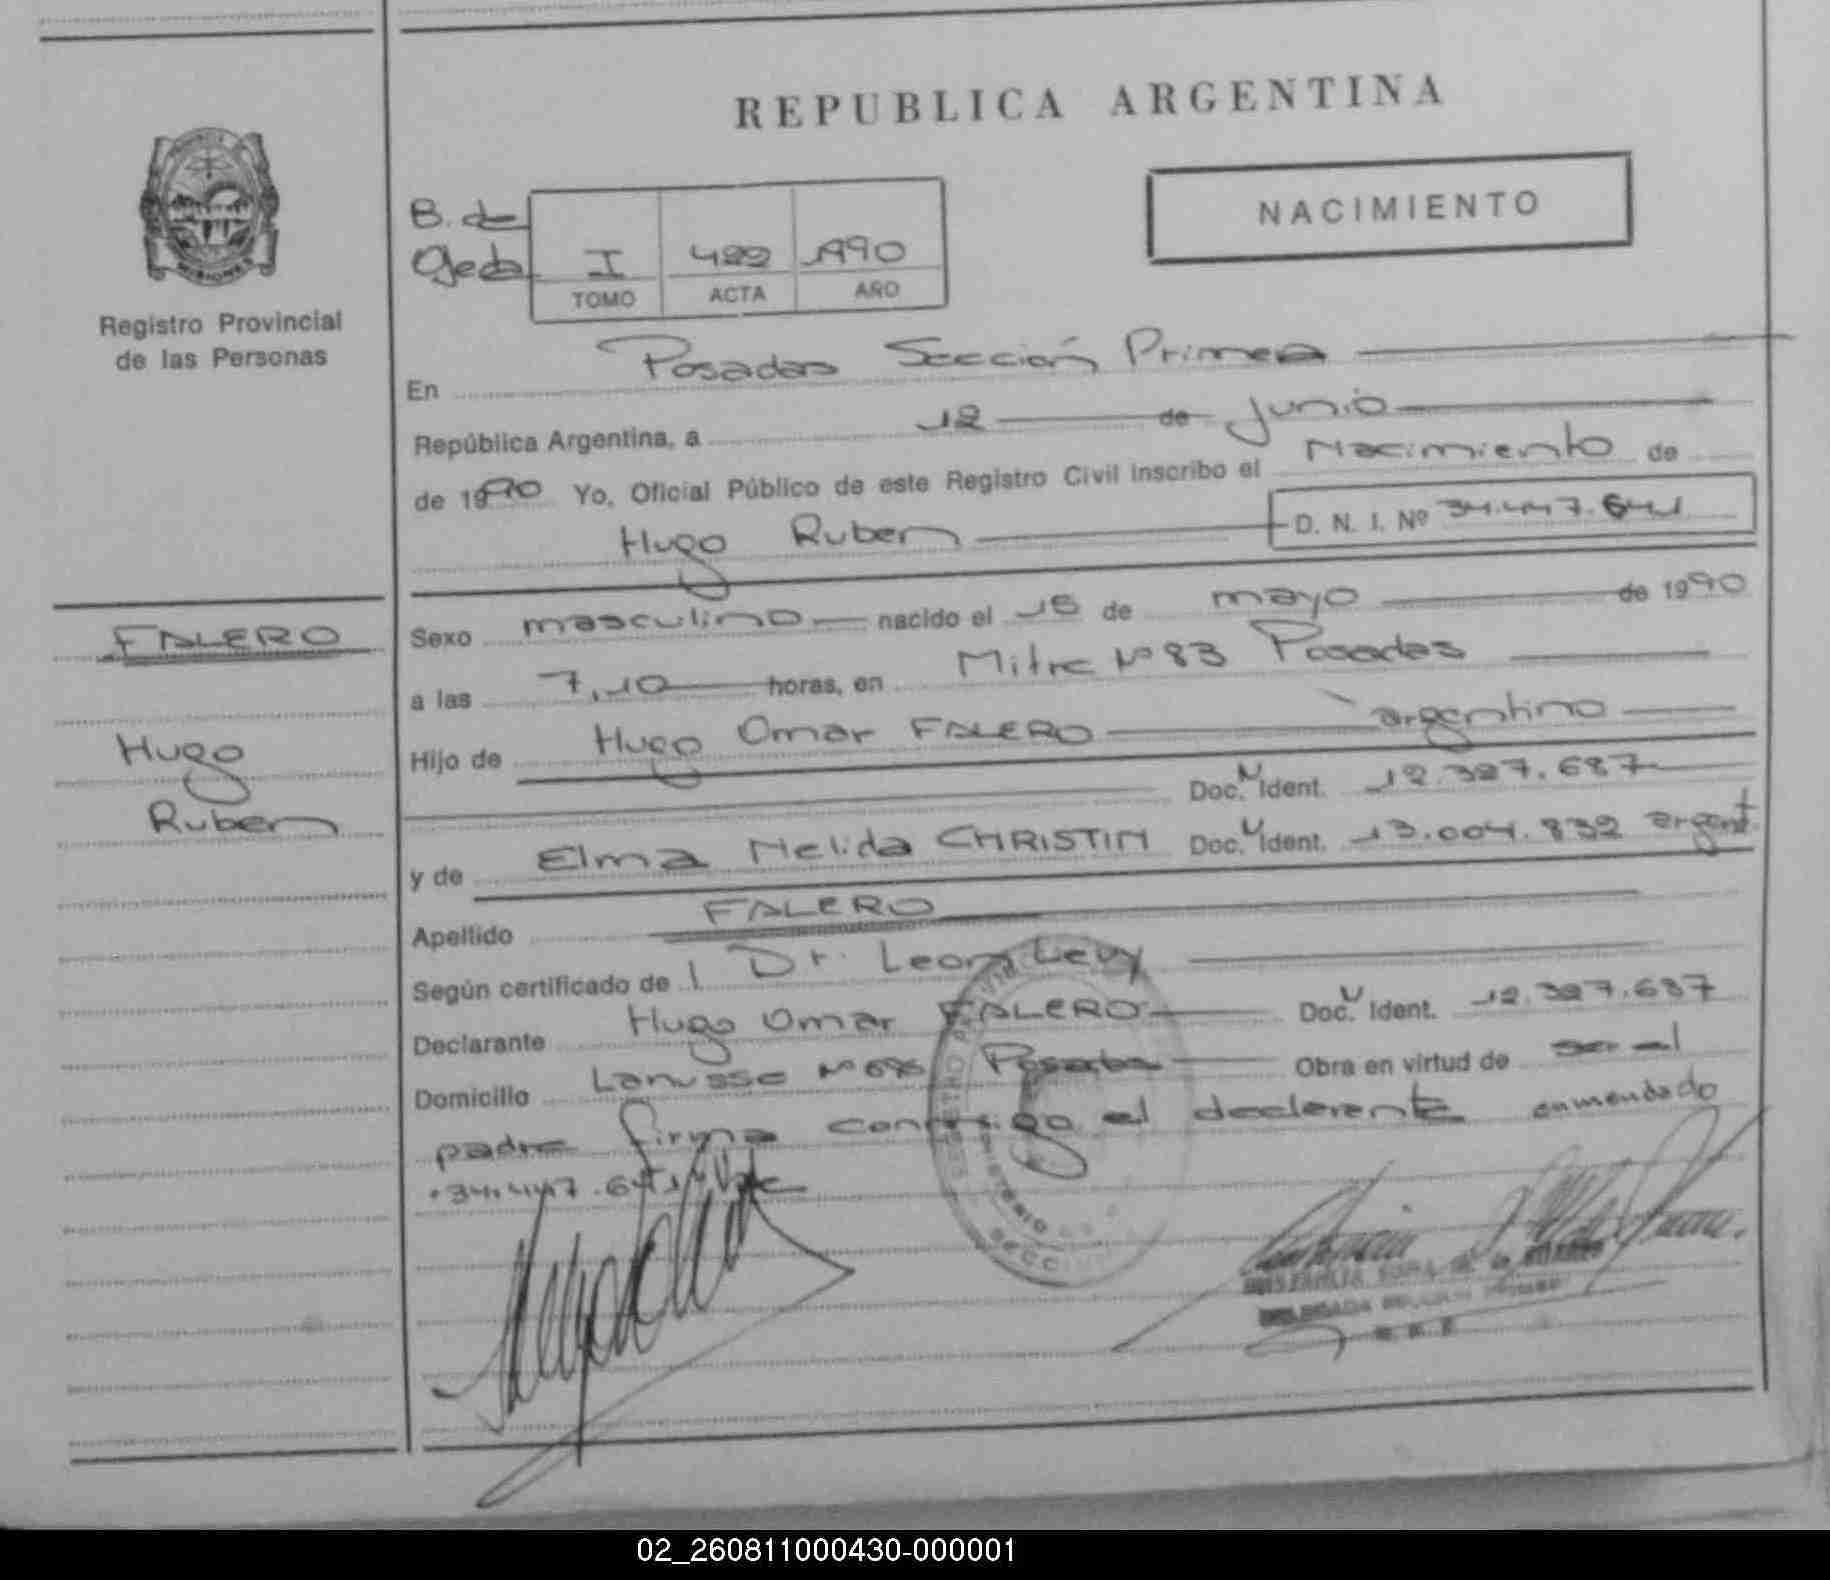 REPUBLICA ARGENTINA
NACIMIENTO
B. de
Ojeda
I 422 1990
TOMO ACTA AÑO
MISIONES
Registro Provincial
de las Personas
En Posadas Sección Primera
República Argentina, a 12 de Junio
de 1990 Yo, Oficial Público de este Registro Civil inscribo el Nacimiento de
Hugo Ruben D. N. I. Nº 34.447.641
FALERO
Hugo
Ruben
Sexo masculino nacido el de mayo de 1990
a las 7,10 horas, en Mitre Nº 83 Posadas
Hijo de Hugo Omar FALERO argentino
Doc. Ident. 12.327.687
y de Elma Nelida CHRISTIN Doc. Ident. 13.004.832 argent.
Apellido FALERO
Según certificado de l Dr. Leon Levy
Declarante Hugo Omar FALERO Doc. Ident. 12.327.687
Domicilio Lanusse Nº Posadas Obra en virtud de ser el
padre firma conmigo el declarante enmendado
34.447.641 Vale
DELEGADA
02_260811000430-000001